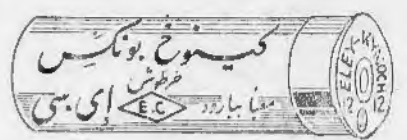 کینوخ بونکس
خرطوش
معبا ببارود E.C إی سی
ELEY-KYNOCH
12 12